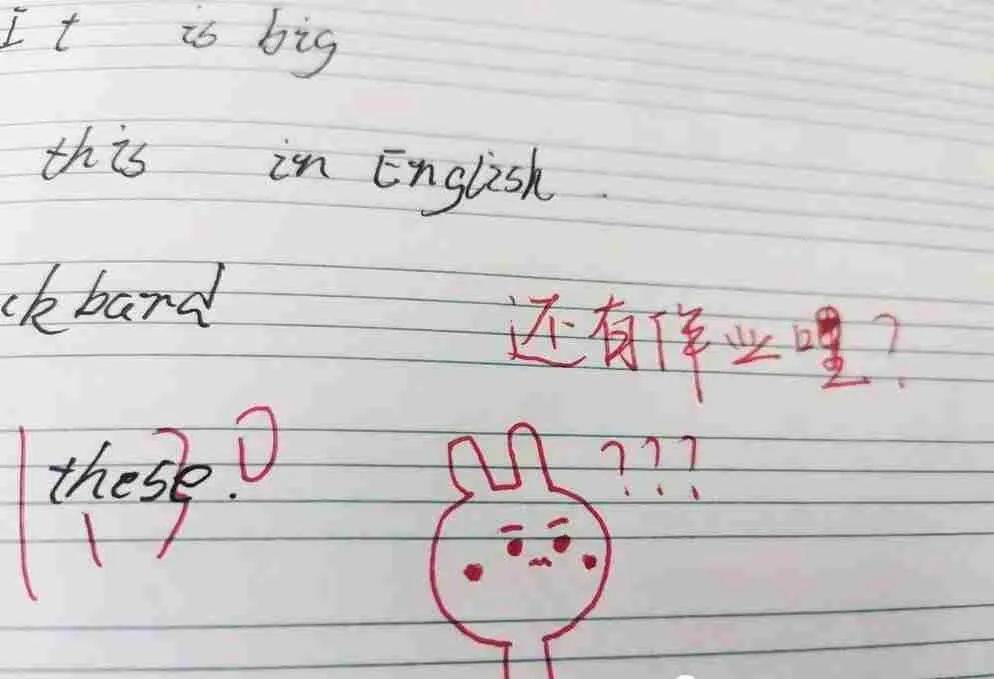 It is big
this in English.
ckbard
还有作业哩?
these.
???